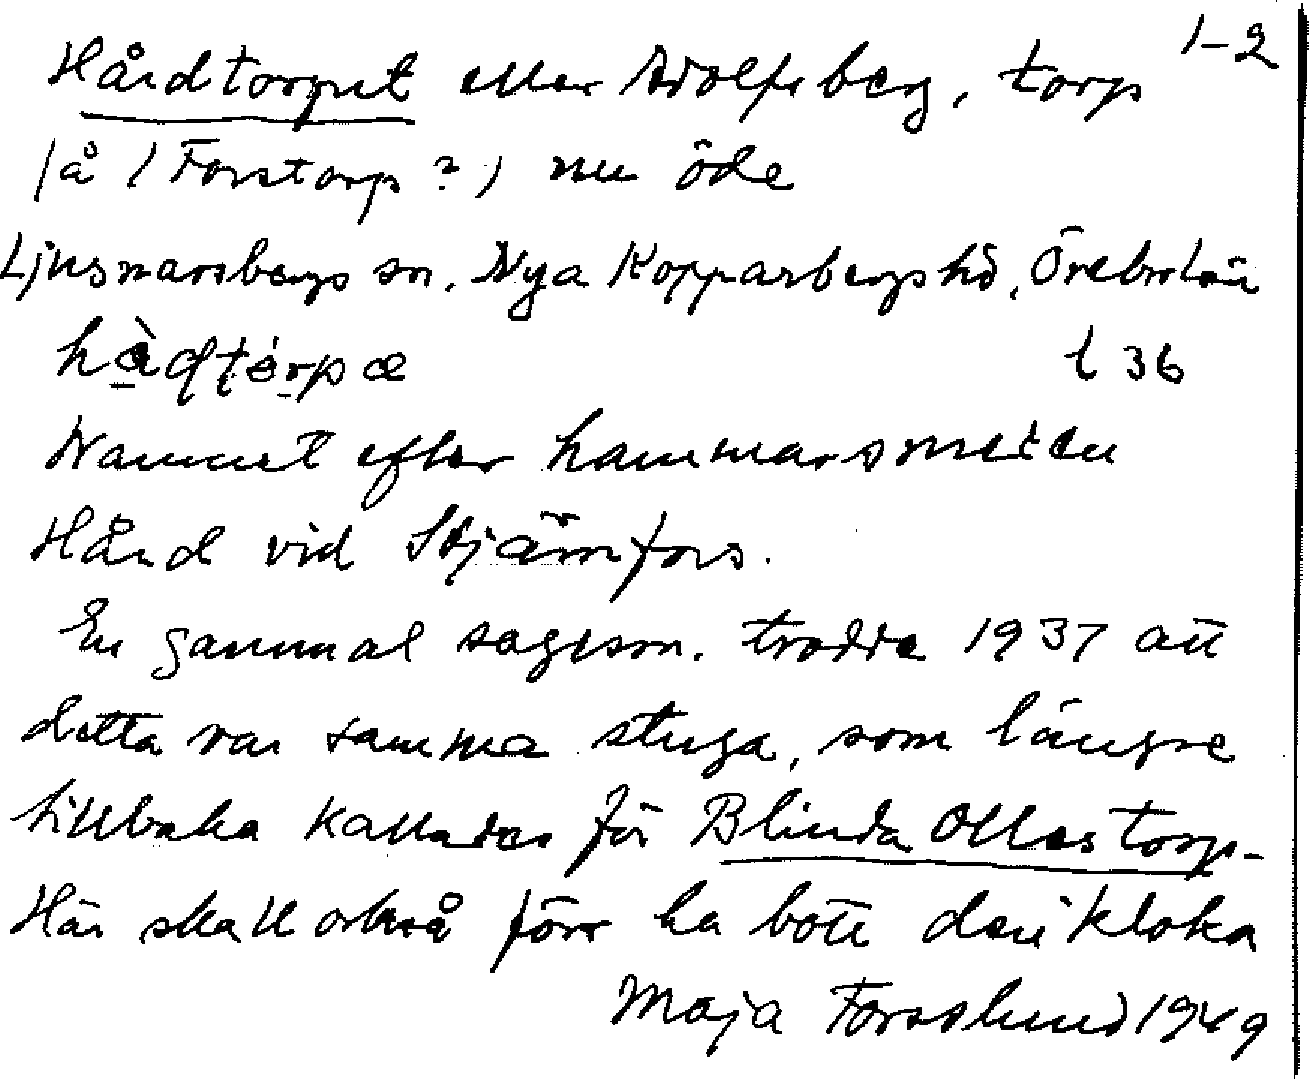 1-2
Hårdtorpet eller Adolfsberg, torp
på (Forstorp?) nu öde
Ljusnarsbergs sn. Nya Kopparbergs hd, Örebro län
hàdtórpæ l 36
Namnet efter hammarsmeden
Hård vid Stjärnfors.
En gammal sagesm. trodde 1937 att
detta var samma stuga, som längre
tillbaka kallades för Blinda Ollas torp.
Här skall också förr ha bott den kloka
Maja Forsslund 1949